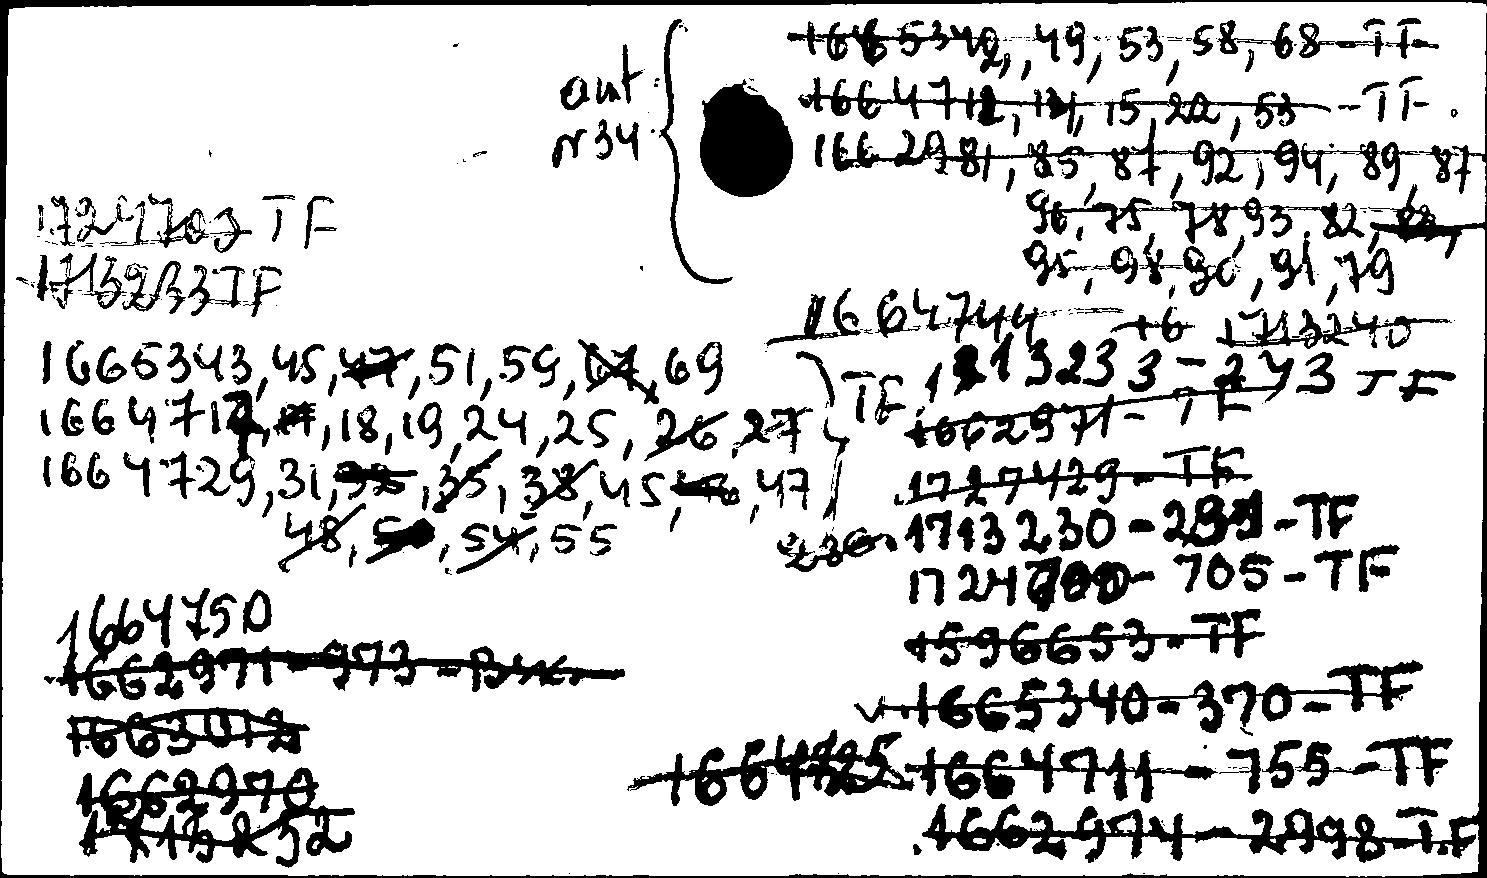 1665342, 49, 53, 58, 68 - TF
aut
nr 34
1664712, 14, 15, 22, 53 - TF.
1662981, 85, 87, 92, 94, 89, 87
96, 75, 78, 93, 82,
95, 98, 90, 91, 79
1724703 TF
1713233 TF
1664744 +6 1713240
1665343, 45, 47, 51, 59, 67, 69
1713233 - 243 TF
1664712, 17, 18, 19, 24, 25, 26, 27
TF
1662971 - TF
1664729, 31, 35, 38, 45, 47
1727429 - TF
48, 54, 55
236
1713230 - TF
1724700 - 705 - TF
1664750
1596653 - TF
1662971 - 973 -
1665340 - 370 - TF
1663012
1664711 - 755 - TF
1662970
1713232
1662974 - 2998 - T.F